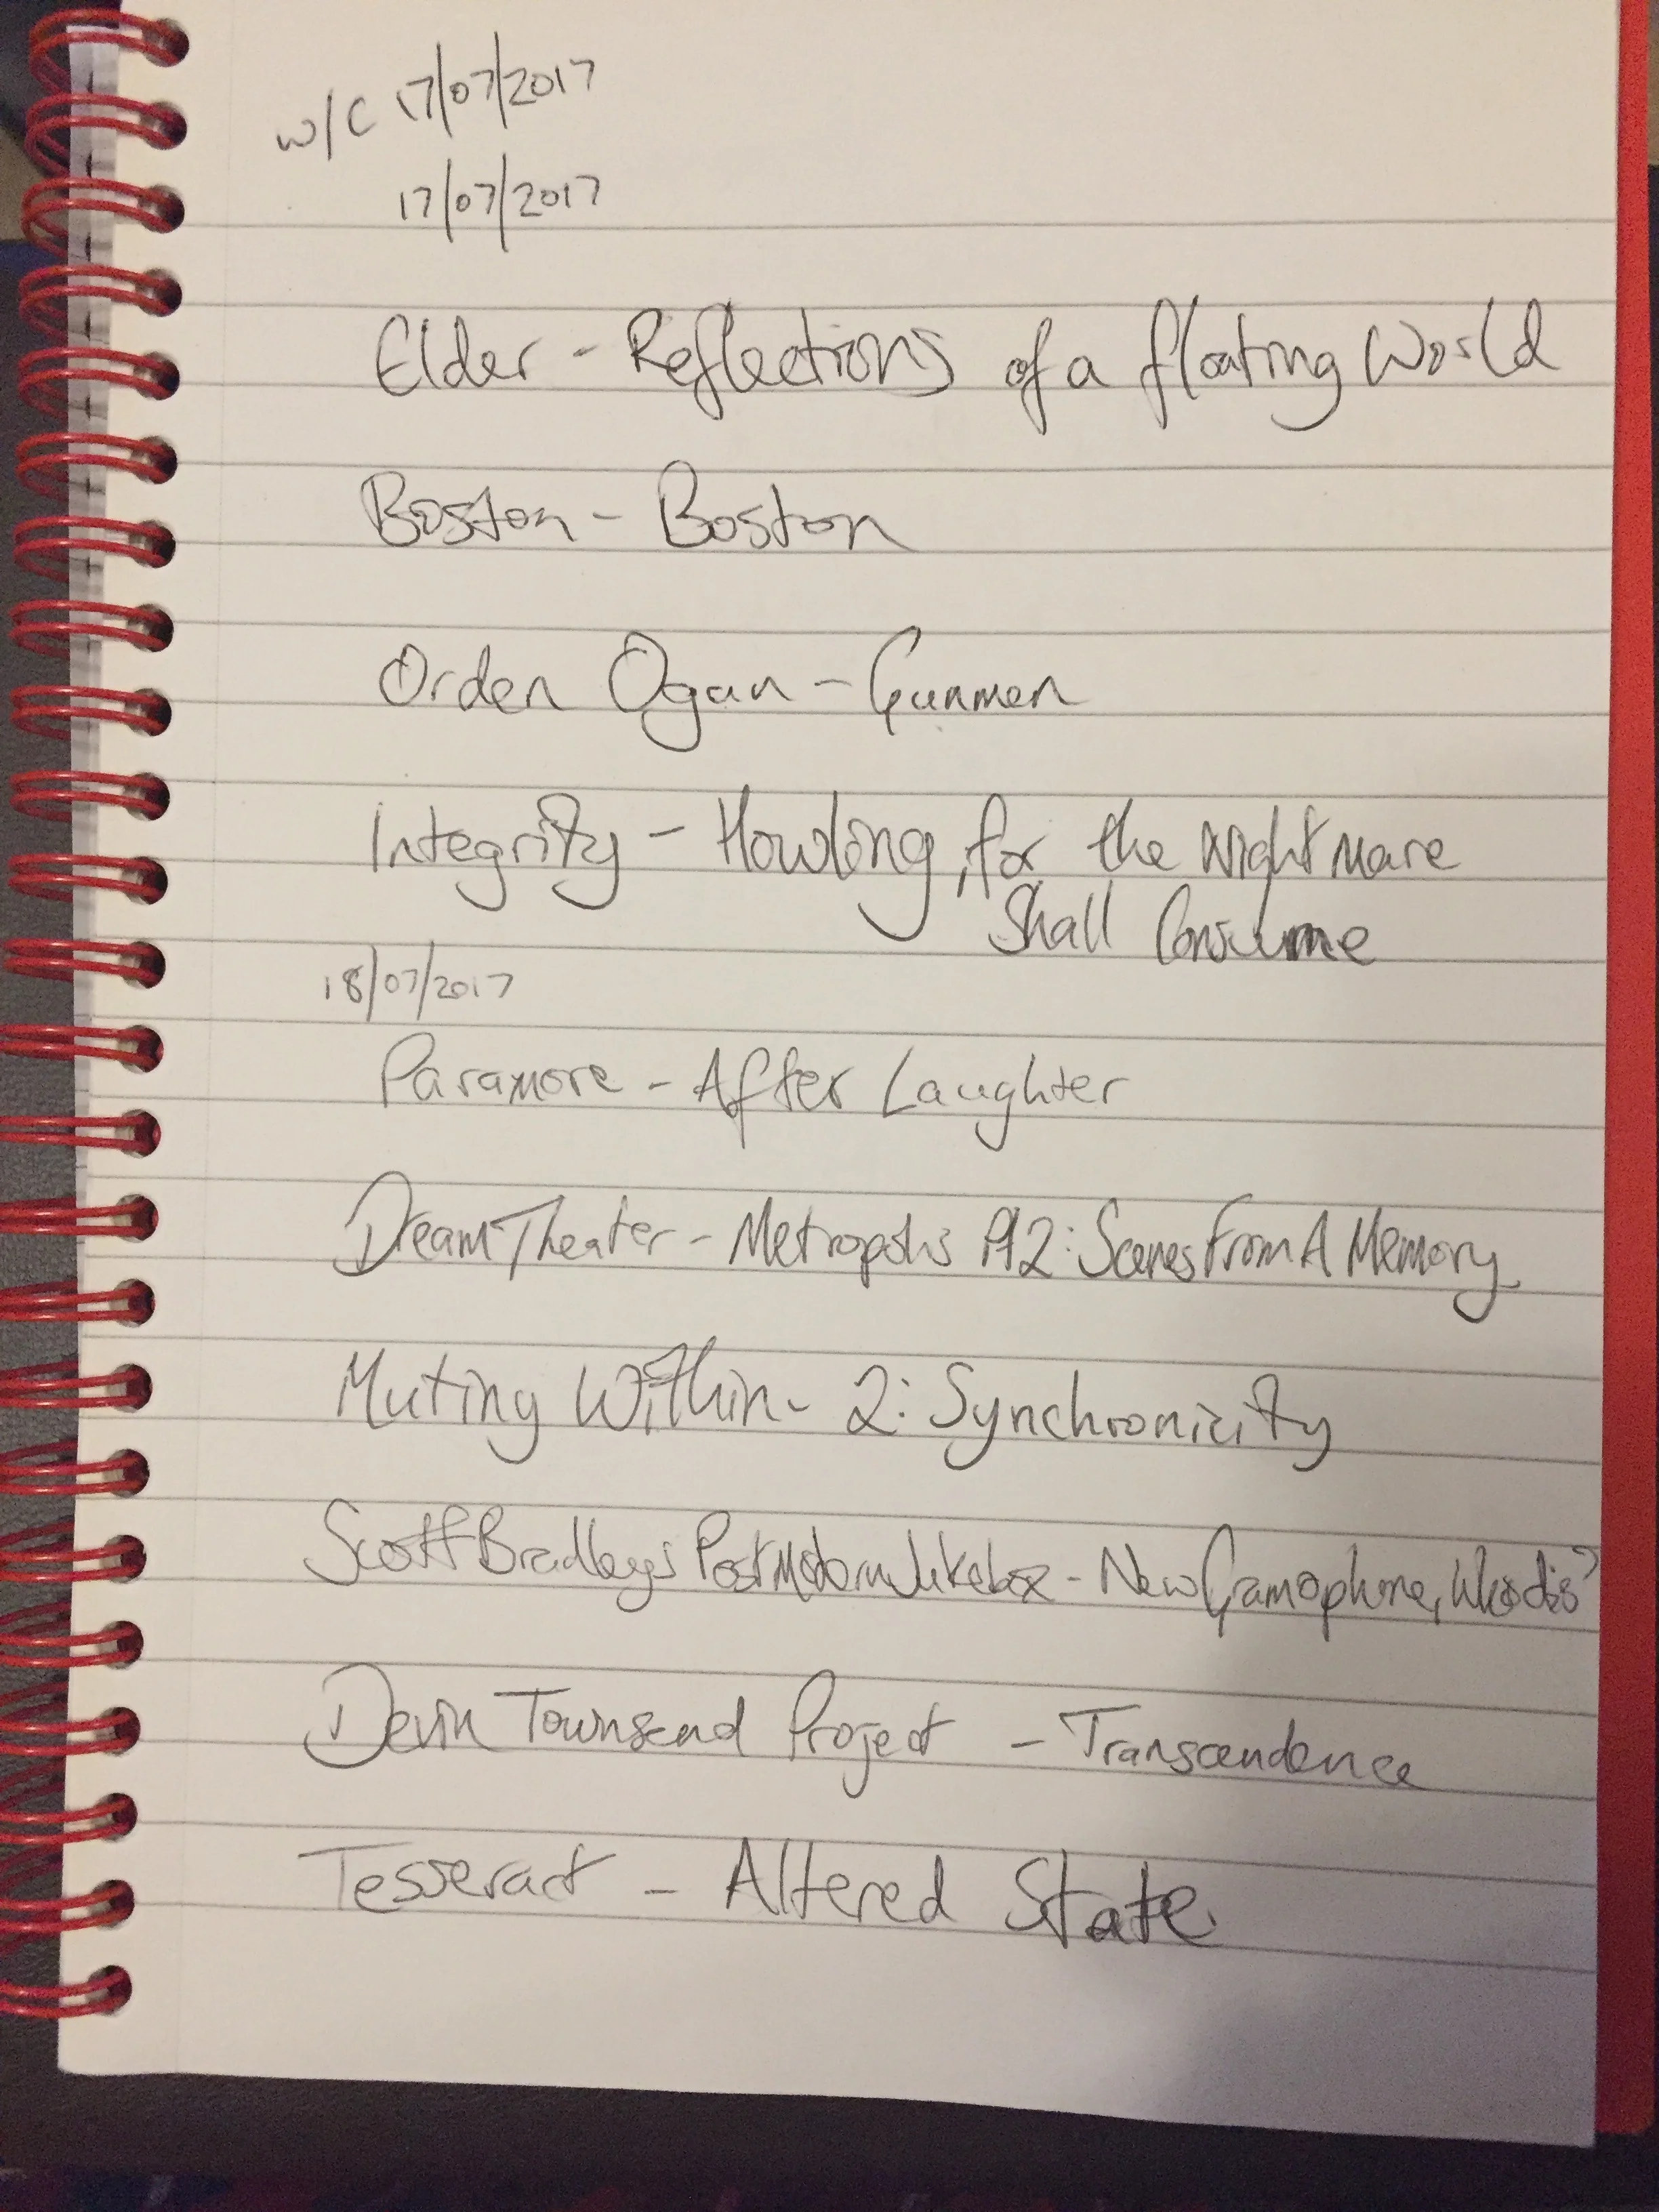 w/c 17/07/2017
17/07/2017
Elder - Reflections of a floating World
Boston - Boston
Orden Ogan - Gunmen
Integrity - Howling, for the Nightmare
Shall Consume
18/07/2017
Paramore - After Laughter
Dream Theater - Metropolis Pt2: Scenes From A Memory
Muting Within - 2: Synchronicity
Scott Bradlee's PostModern Jukebox - New Gramophone, Who dis?
Devin Townsend Project - Transcendence
Tesseract - Altered State